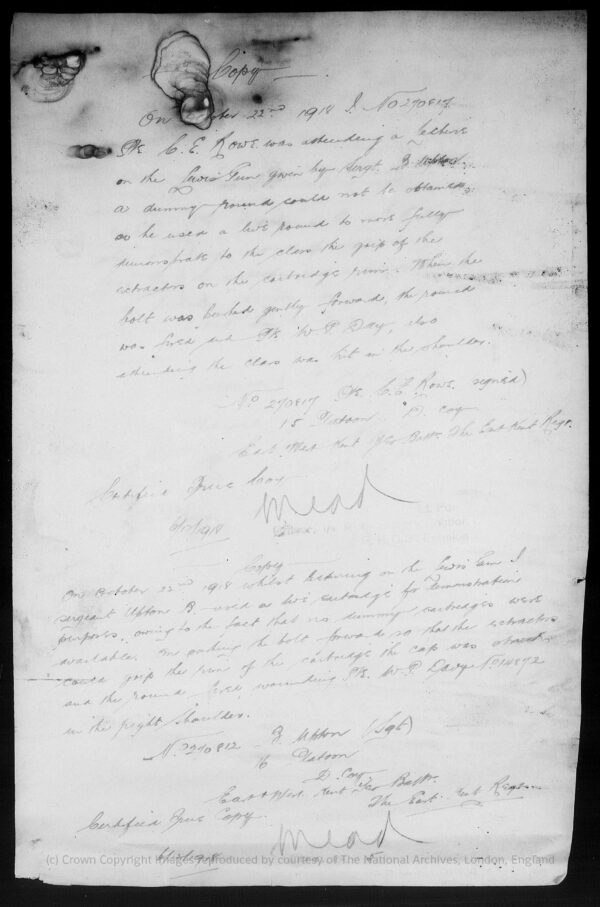 Copy
On October 22nd 1918 I, No 270817
Pte C. E. Rowe was attending a lecture
on the Lewis Gun given by Sergt. B Upton.
a dummy round could not be obtained,
so he used a live round to more fully
demonstrate to the class the grip of the
extractors on the cartridge rim. When the
bolt was pushed gently forward, the round
was fired and Pte W. P. Day, also
attending the class was hit in the shoulder.
No 270817 Pte C. E. Rowe signed)
15 Platoon D Coy
East & West Kent Yeo Battn. The East Kent Regt.
Certified True Copy
Mead
Copy
On October 22nd 1918 whilst lecturing on the Lewis Gun I
sergeant Upton B. used a live cartridge for demonstration
purposes, owing to the fact that no dummy cartridges were
available. On pushing the bolt forward so that the extractors
could grip the rim of the cartridge the cap was
and the round fired wounding Pte. W. P. Day No 14872
in the right shoulder.
No 270812 B Upton (Sgt)
Platoon
D. Coy
East & West Kent Yeo Battn.
The East Kent Regt.
Certified True Copy.
Mead
(c) Crown Copyright Images reproduced by courtesy of The National Archives, London, England